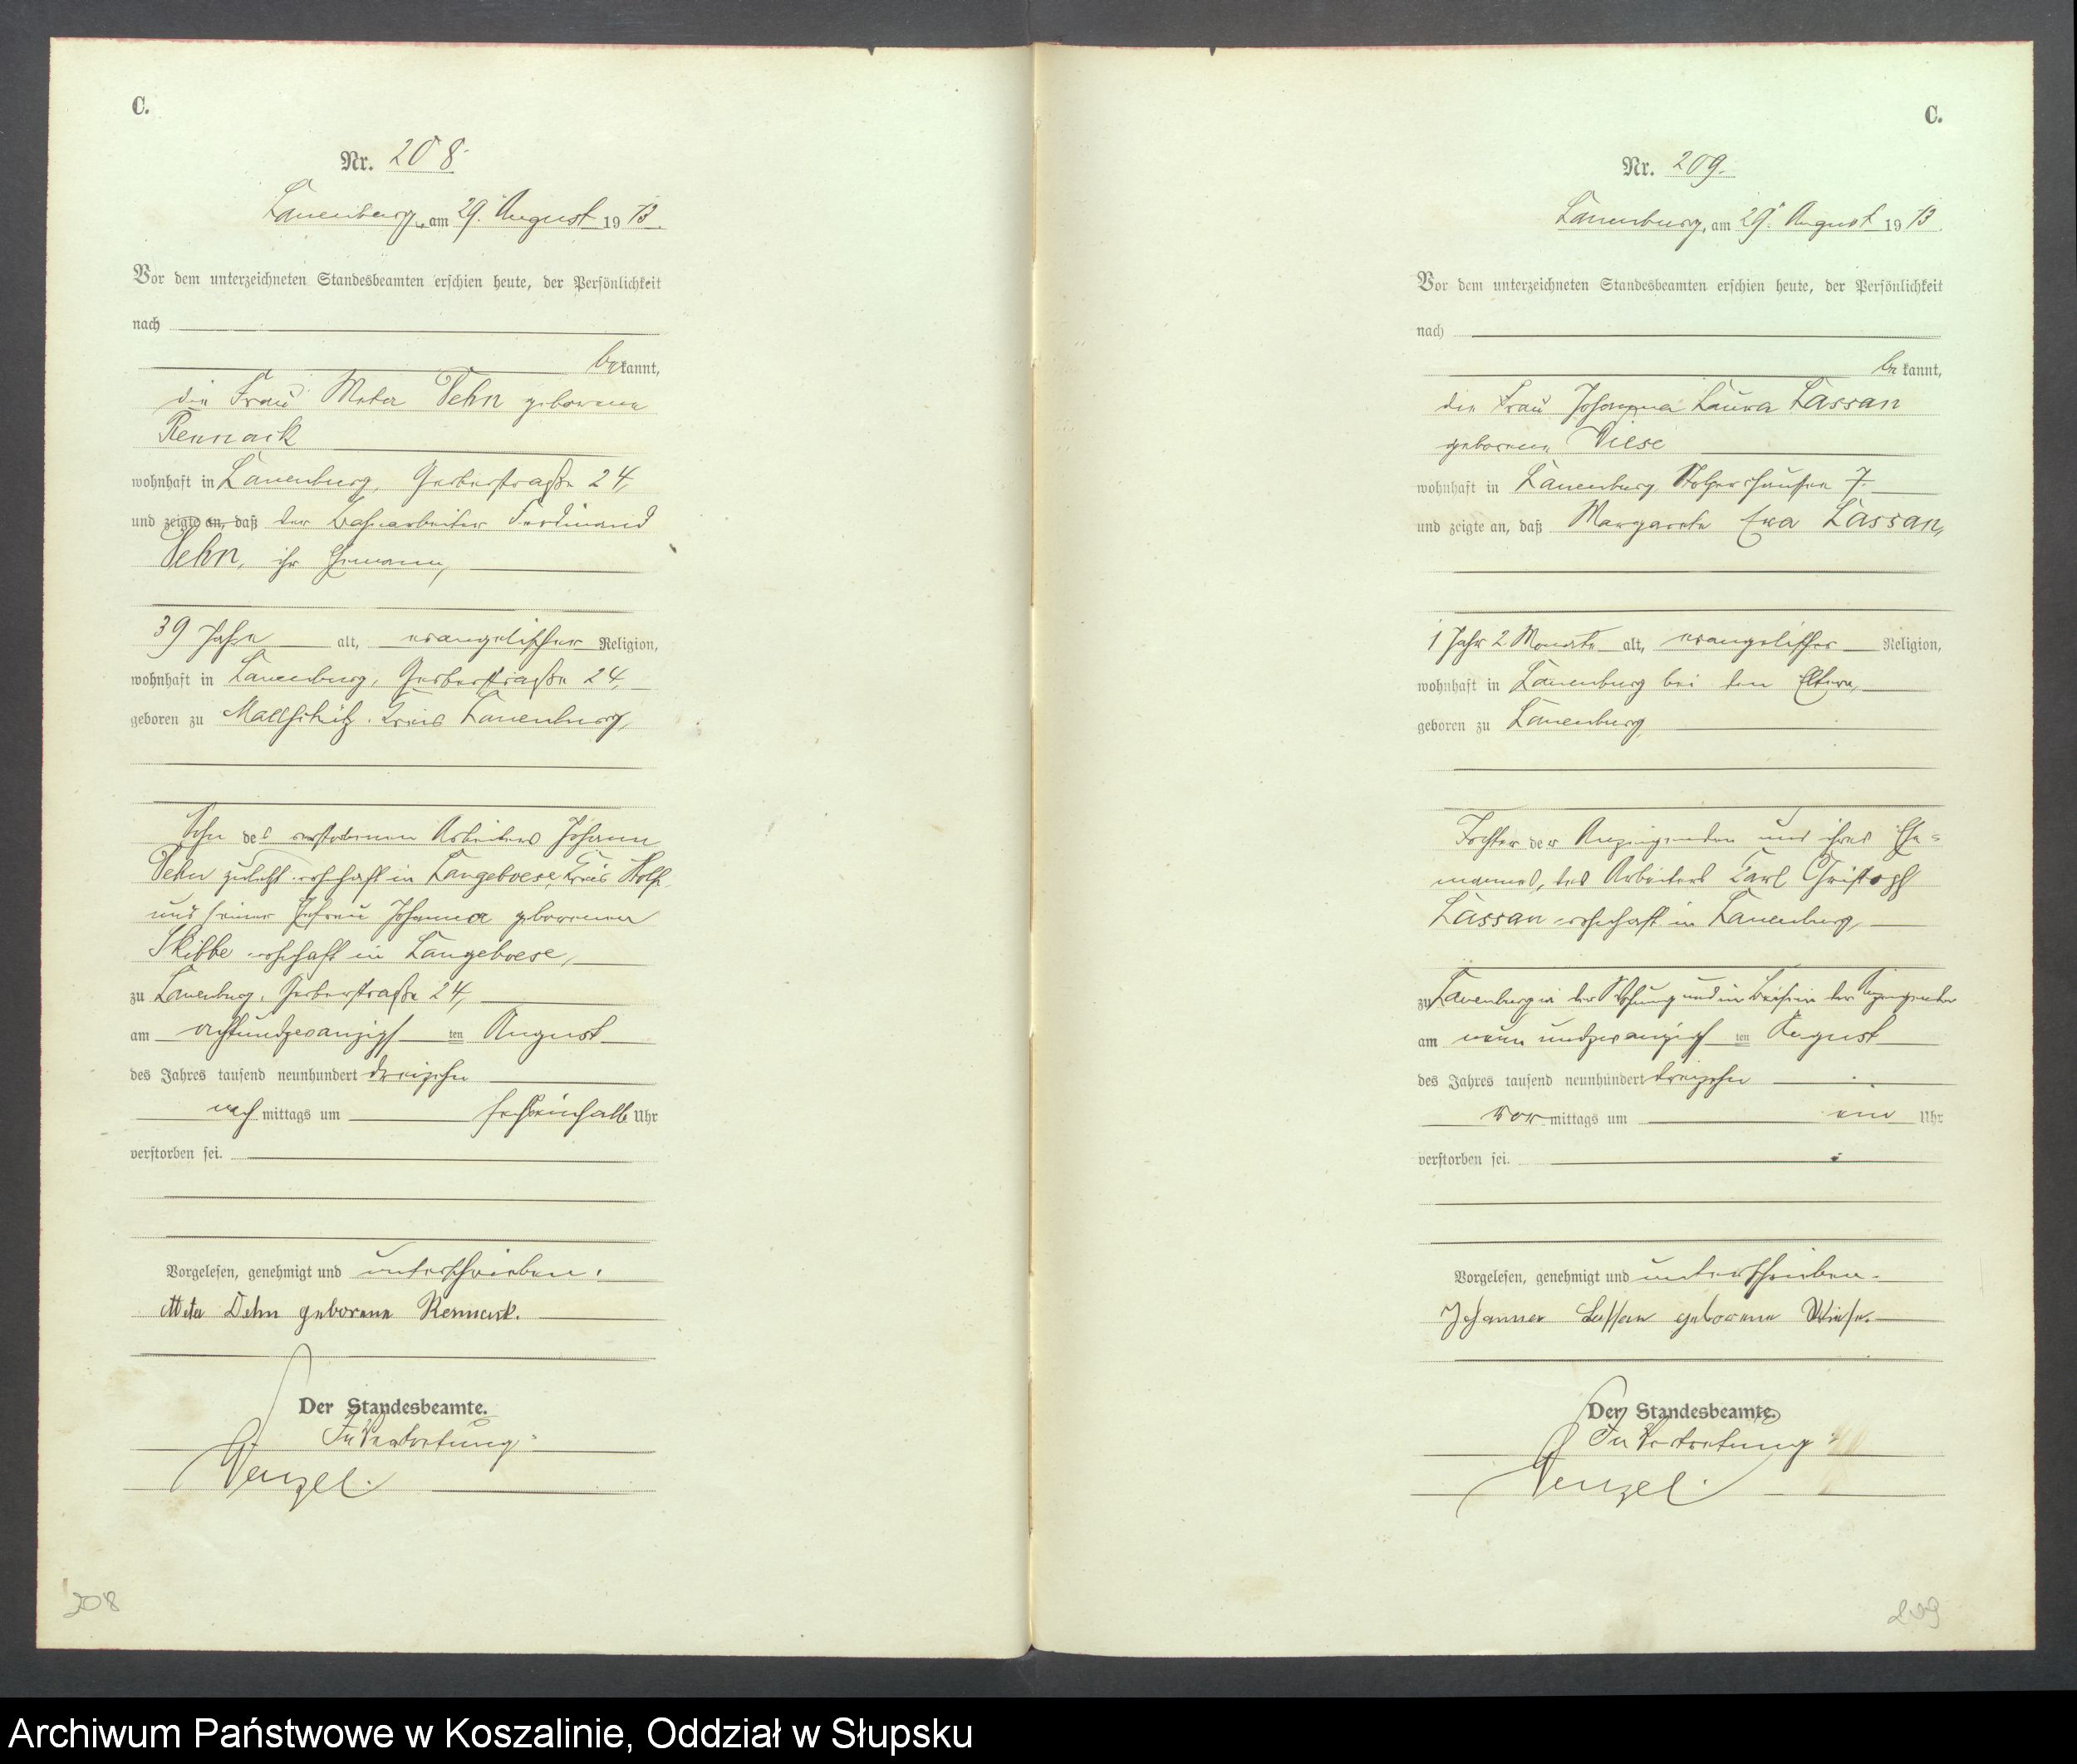 C.
Nr. 208.
Lauenburg, am 29. August 1913.
Vor dem unterzeichneten Standesbeamten erschien heute, der Persönlichkeit
nach
bekannt,
die Frau Meta Dehn geborene
Rennack
wohnhaft in Lauenburg, Gerberstraße 24,
und zeigte an, daß der Bahnarbeiter Ferdinand
Dehn, ihr Ehemann,
39 Jahre alt, evangelischer Religion,
wohnhaft in Lauenburg, Gerberstraße 24,
geboren zu Mallschitz, Kreis Lauenburg,
Sohn des verstorbenen Arbeiters Johann
Dehn zuletzt wohnhaft in Langeboese, Kreis Stolp
und seiner Ehefrau Johanna geborenen
Skibbe wohnhaft in Langeboese,
zu Lauenburg, Gerberstraße 24,
am achtundzwanzigsten August
des Jahres tausend neunhundert dreizehn
nachmittags um sechseinhalb Uhr
verstorben sei.
Vorgelesen, genehmigt und unterschrieben.
Meta Dehn geborene Rennack.
Der Standesbeamte.
In Vertretung:
Wenzel.
208
C.
Nr. 209.
Lauenburg, am 29. August 1913.
Vor dem unterzeichneten Standesbeamten erschien heute, der Persönlichkeit
nach
bekannt,
die Frau Johanna Laura Lassan
geborene Wiese
wohnhaft in Lauenburg, 7.
und zeigte an, daß Margarete Eva Lassan,
1 Jahr 2 Monate alt, evangelischer Religion,
wohnhaft in Lauenburg bei den Eltern,
geboren zu Lauenburg
Tochter der Anzeigenden und ihres Ehe=
mannes, des Arbeiters Carl Christoph
Lassan wohnhaft in Lauenburg,
zu Lauenburg in der Wohnung und im Beisein der Anzeigenden
am neun undzwanzigsten August
des Jahres tausend neunhundert dreizehn
vormittags um ein Uhr
verstorben sei.
Vorgelesen, genehmigt und unterschrieben.
Johanna Lassan geborene Wiese.
Der Standesbeamte.
In Vertretung:
Wenzel.
209
Archiwum Państwowe w Koszalinie, Oddział w Słupsku